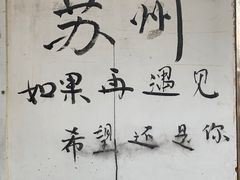 苏州
如果再遇见
希望还是你